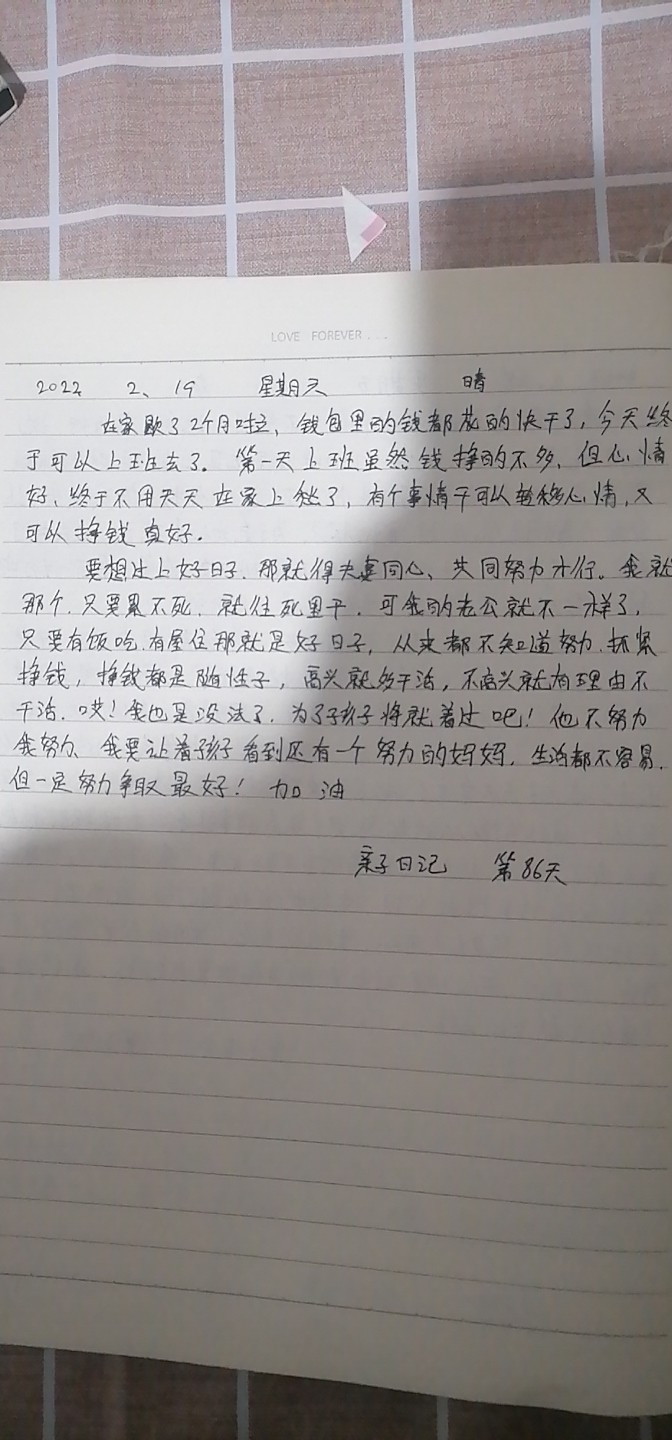 LOVE FOREVER...
2022 2、19 星期天 晴
在家歇了2个月啦、钱包里的钱都花的快干了,今天终
于可以上班去了。第一天上班虽然钱挣的不多、但心情
好、终于不用天天在家上愁了,有个事情干可以转移心情,又
可以挣钱真好。
要想过上好日子、那就得夫妻同心、共同努力才行。我就
那个、只要累不死、就往死里干、可我的老公就不一样了,
只要有饭吃、有屋住那就是好日子,从来都不知道努力、抓紧
挣钱,挣钱都是随性子,高兴就多干活,不高兴就有理由不
干活、哎!我也是没法了、为了孩子将就着过吧!他不努力
我努力、我要让着孩子看到还有一个努力的妈妈,生活都不容易、
但一定努力争取最好! 加油
亲子日记 第86天